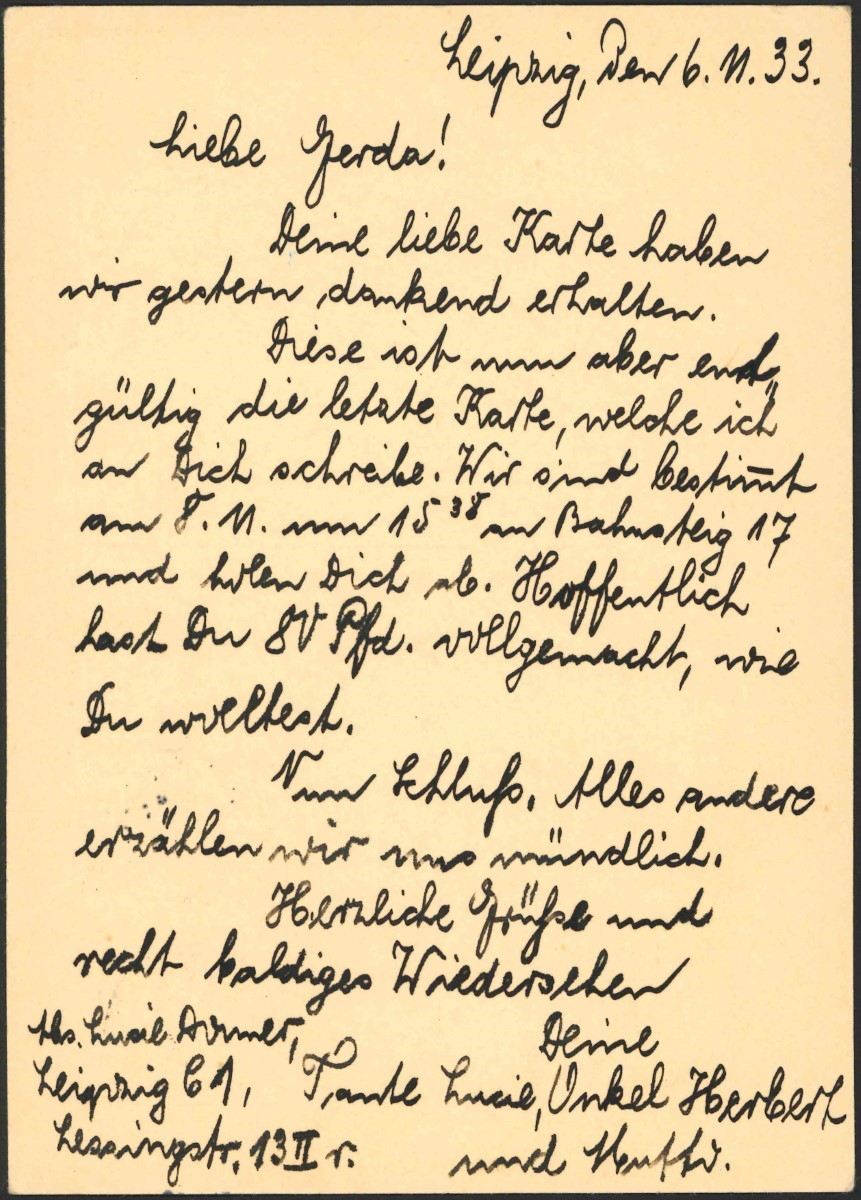 Leipzig, den 6. 11. 33.
Liebe Gerda!
Deine liebe Karte haben
wir gestern dankend erhalten.
Diese ist nun aber end„
gültig die letzte Karte, welche ich
an Dich schreibe. Wir sind bestim̅t
am 8. 11. um 15 38 an Bahnsteig 17
und holen Dich ab. Hoffentlich
hast Du 80 Pfd. vollgemacht, wie
Du wolltest.
Nun Schluß. Alles andere
erzählen wir uns mündlich.
Herzliche Grüße und
recht baldiges Wiedersehen
Deine
Tante Lucie, Onkel Herbert
und Mutti.
Abs. Lucie
Leipzig C 1,
Lessingstr. 13 II r.